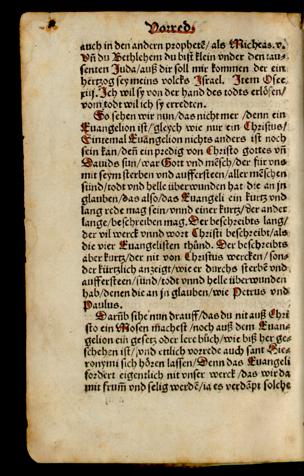 Vorred.
auch in den andern prophetē/ als Micheas.v.
Vñ du Bethlehem du bist klein vnder den tau-
senten Juda/ auß dir soll mir kommen der ein
hertzog sey meins volcks Israel. Item Osee
xiij. Ich wil sy von der hand des todts erlösen/
vom todt wil ich sy erredten.
So sehen wir nun/ das nicht mer/ denn ein
Euangelion ist/ gleych wie nur ein Christus/
Sintemal Euāgelion nichts anders ist noch
sein kan/ deñ ein predig von Christo gottes vñ
Dauids sun/ war Gott vnd mēsch/ der für vns
mit seym sterben vnd auffersteen/ aller mēschen
sünd/ todt vnd helle überwunden hat die an jn
glauben/ das also/ das Euangeli ein kurtz vnd
lang rede mag sein/ vnnd einer kurtz/ der ander
lange/ beschreiben mag. Der beschreibts lang/
der vil werck vnnd wort Christi beschreibt/ als
die vier Euangelisten thůnd. Der beschreibts
aber kurtz/ der nit von Christus wercken/ son-
der kürtzlich anzeigt/ wie er durchs sterbē vnd
aufferstehen/ sünd/ todt vnnd helle überwunden
hab/ denen die an jn glauben/ wie Petrus vnd
Paulus.
Darūb sihe nun drauff/ das du nit auß Chri
sto ein Mosen machest/ noch auß dem Euan-
gelion ein gesetz oder lere bůch/ wie biß her ge-
schehen ist/ vnd ettlich vorrede auch sant Hie-
ronymi sich hören lassen/ Denn das Euangeli
fordert eigentlich nit vnser werck/ das wir da
mit frum̄ vnd selig werdē/ ja es verdāpt solche